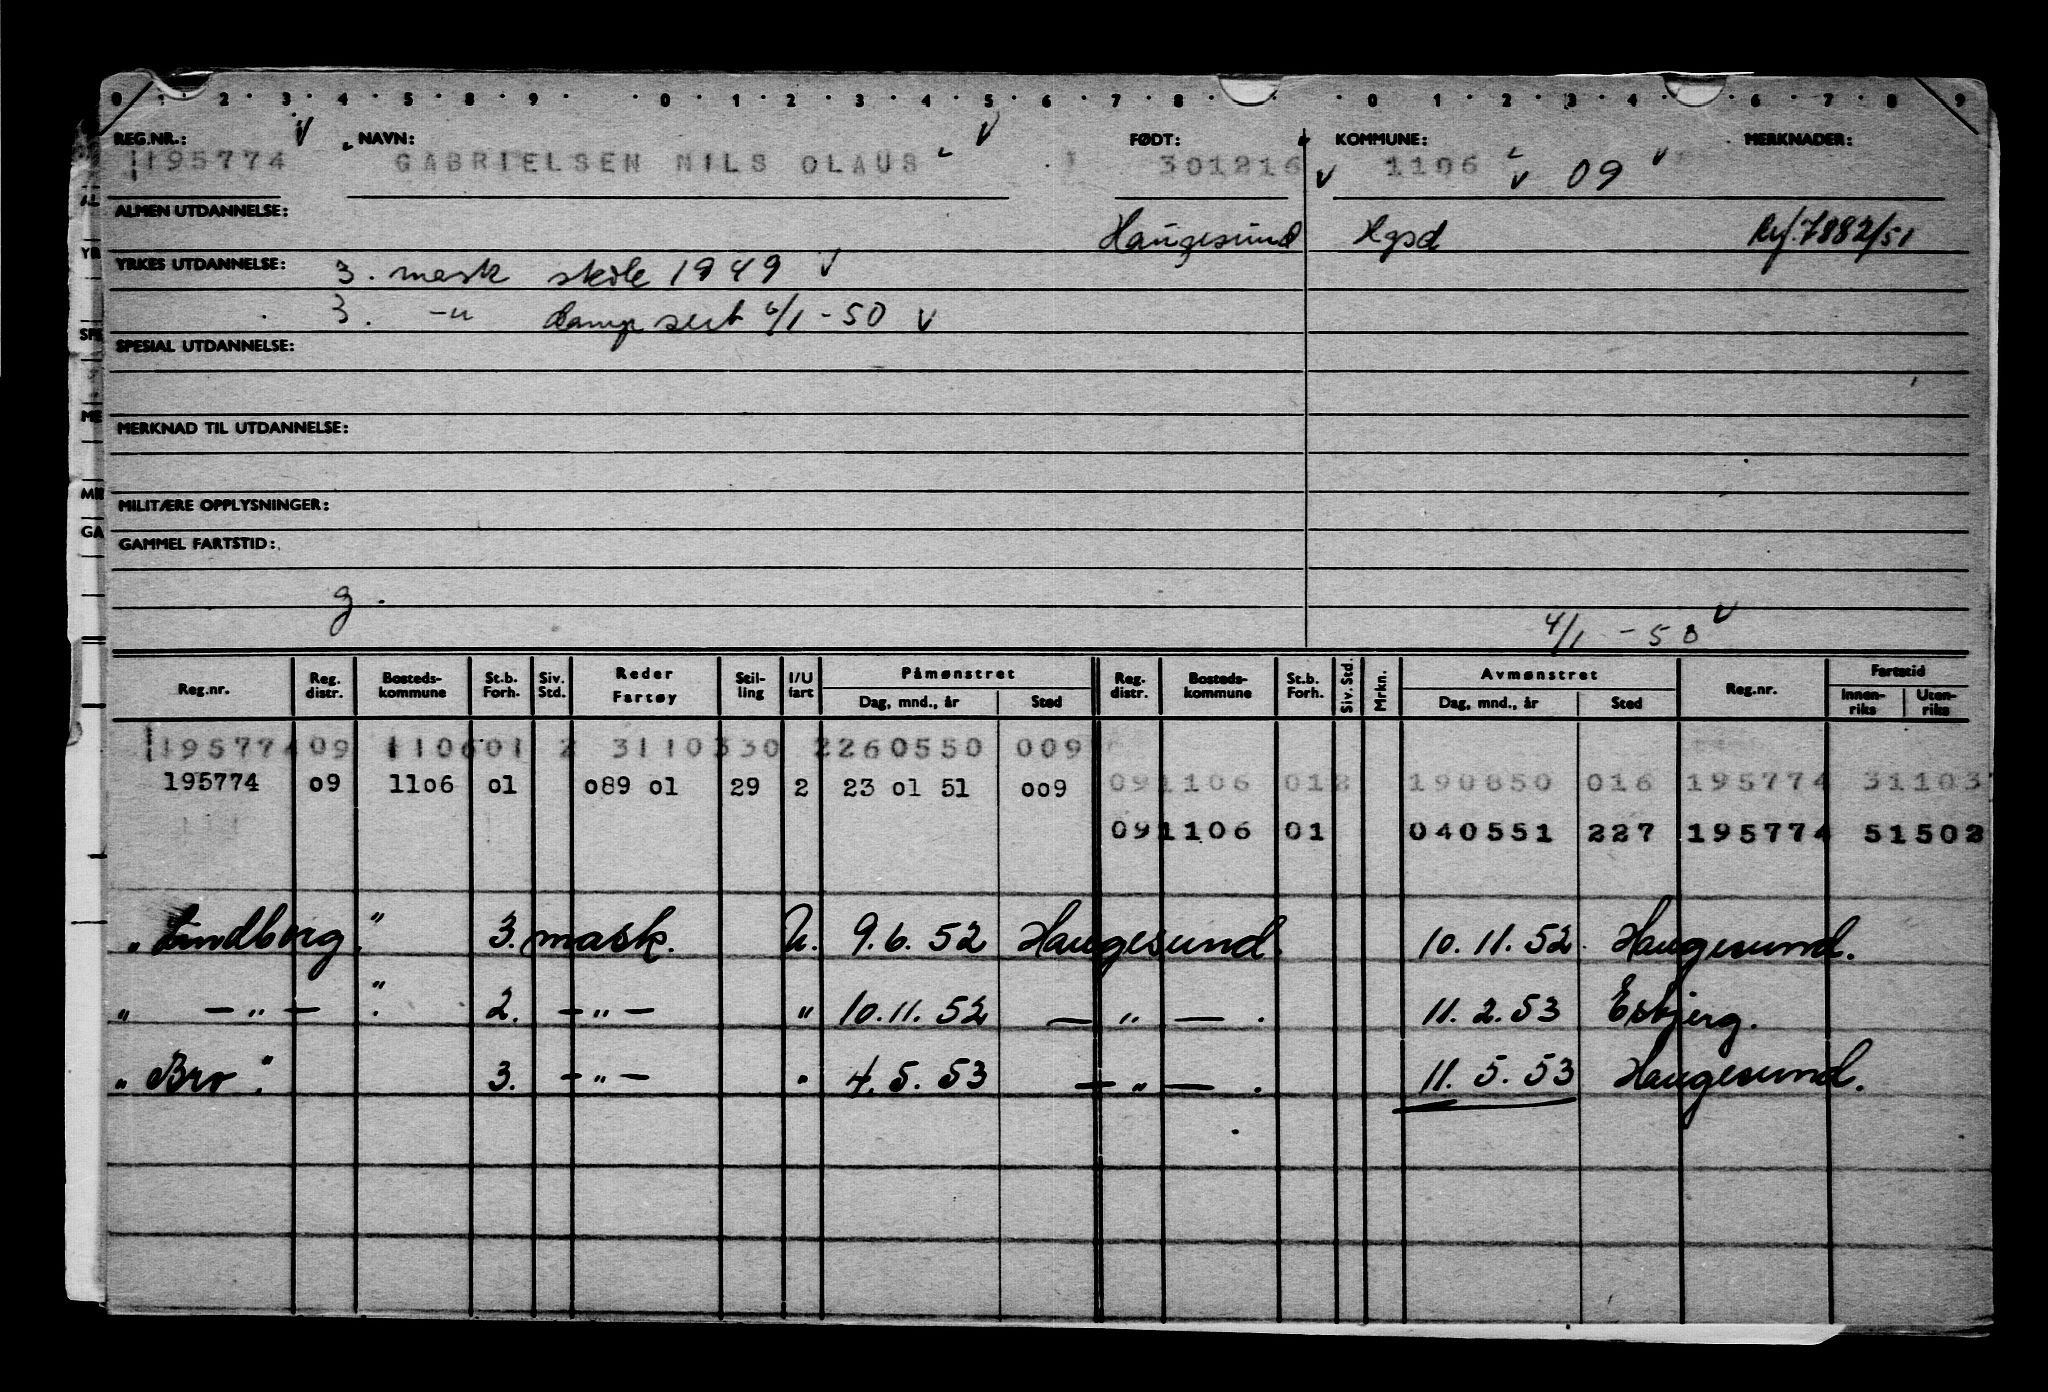 0 1 2 3 4 5 8 9 0 1 2 3 4 5 6 7 8 0 1 2 3 4 6 7 8 9
REG.NR.: NAVN: FØDT: KOMMUNE: MERKNADER:
195774 GABRIELSEN NILS OLAUS 301216 1106 09
ALMEN UTDANNELSE: Haugesund Hgsd Ref. 7882/51
YRKES UTDANNELSE: 3. mask skole 1949
3. -"- damp sert 4/1 - 50
SPESIAL UTDANNELSE:
MERKNAD TIL UTDANNELSE:
MILITÆRE OPPLYSNINGER:
GAMMEL FARTSTID:
g.
4/1 - 50
Reg.nr. Reg. distr. Bosteds-kommune St.b. Forh. Siv. Std. Reder Fartøy Stil-ling I/U fart Påmønstret Dag, mnd., år Sted Reg. distr. Bosteds-kommune St.b. Forh. Siv. Std. Mrkn. Avmønstret Dag, mnd., år Sted Reg.nr. Fartstid Innen-riks Uten-riks
195774 09 1106 01 2 3110330 2260550 009
195774 09 1106 01 089 01 29 2 23 01 51 009 091106 012 190850 016 195774 31103
091106 01 040551 227 195774 51502
"Lindborg." 3. mask. U. 9.6.52 Haugesund. 10.11.52. Haugesund.
" -"- ". 2. -"- " 10.11.52 -"- . 11.2.53 Esbjerg.
"Bro". 3. -"- " 4.5.53 -"- . 11.5.53 Haugesund.